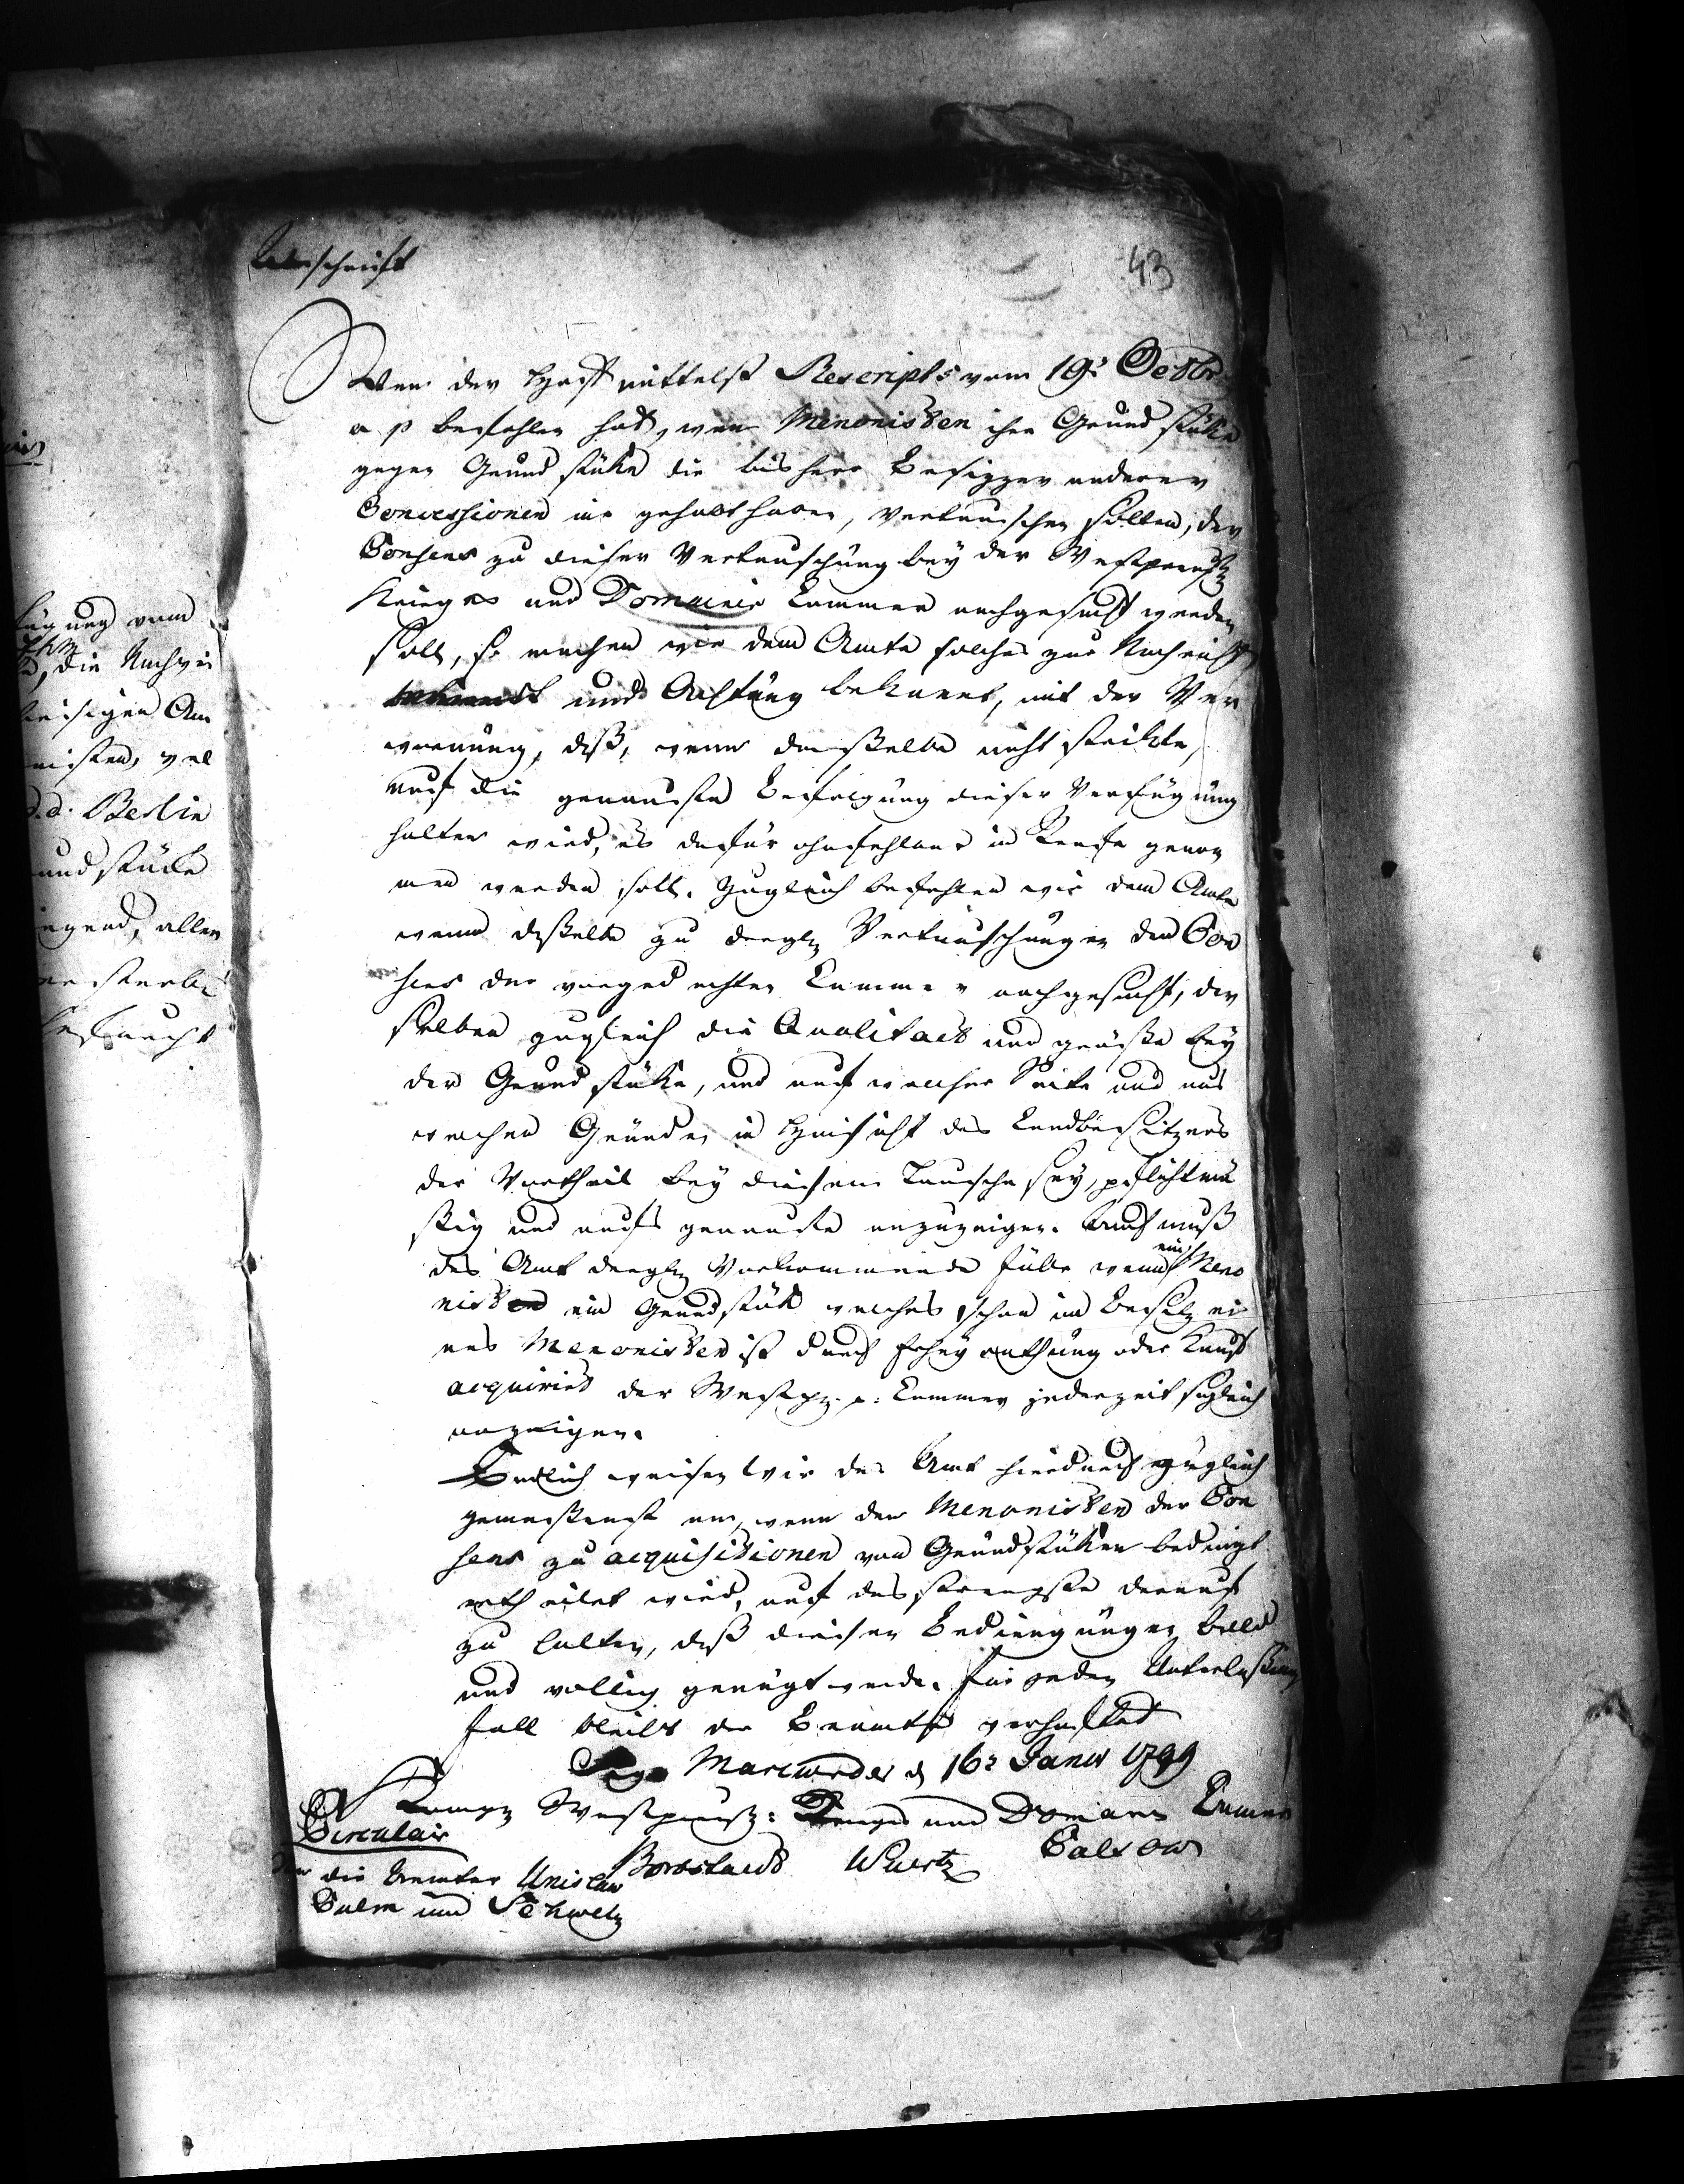 Abschrift
43
Wenn der Hof mittelst Rescripts vom 19t Octbr
a. p. befohlen hat, wenn Menonisten ihre Grundstüke
gegen Grundstüke die bisher Besizzer anderer
Concessionen inne gehabt haben, vertauschen solten, der
Consens zu dieser Vertauschung bey der Westpreuß
Krieges und Domainen Cammer nachgesucht werden
soll, so machen wir dem Amte solches zur Nachricht
und Achtung bekannt, mit der Ver
warnung, daß, wenn dasselbe nicht strikte,
auf die genaueste Befolgung dieser Verfügung
halten wird, es dafür ohnfehlbar in Strafe genom
men werden soll. Zugleich befehlen wir dem Amte
wenn dasselbe zu dergl Vertauschungen den Con
sens der vorgedachten Cammer nachgesucht, der
selben zugleich die Qualitaet und größe bey
der Grundstüke, und auf welcher Seite und aus
welchen Gründen in Hinsicht des Landbesitzers
der Vortheil bey diesem Tausche sey, pflichtmä
ßig und aufs genauste anzuzeigen. Auch muß
das Amt dergl Vorkommende Fälle wenn ein Meno
nisten ein Grundstük welches schon im Besitz ei
nes Menonisten ist durch Erheyrathung oder Kauf
acquirirt der Westpr. p. Cammer jederzeit sogleich
anzeigen.
Endlich weisen Wir das Amt hierdurch zugleich
gemessenst an, wenn den Menonisten der Con
sens zu acquisitionen von Grundstüken bedingt
ertheilet wird, auf das strengste darauf
zu halten, daß diesen Bedingungen bald
und völlig genügt werde. Für jeden Unterlassungs
fall bleibt der Beamte verhaftet
Marienwerder d 16t Janur 1799
Königl Westpreuß: Krieges und Domainen Cammer
Circulair
an die Aemter Unislaw
Culm und Schwetz
Wuertz
und stüke
d.d. Berlin